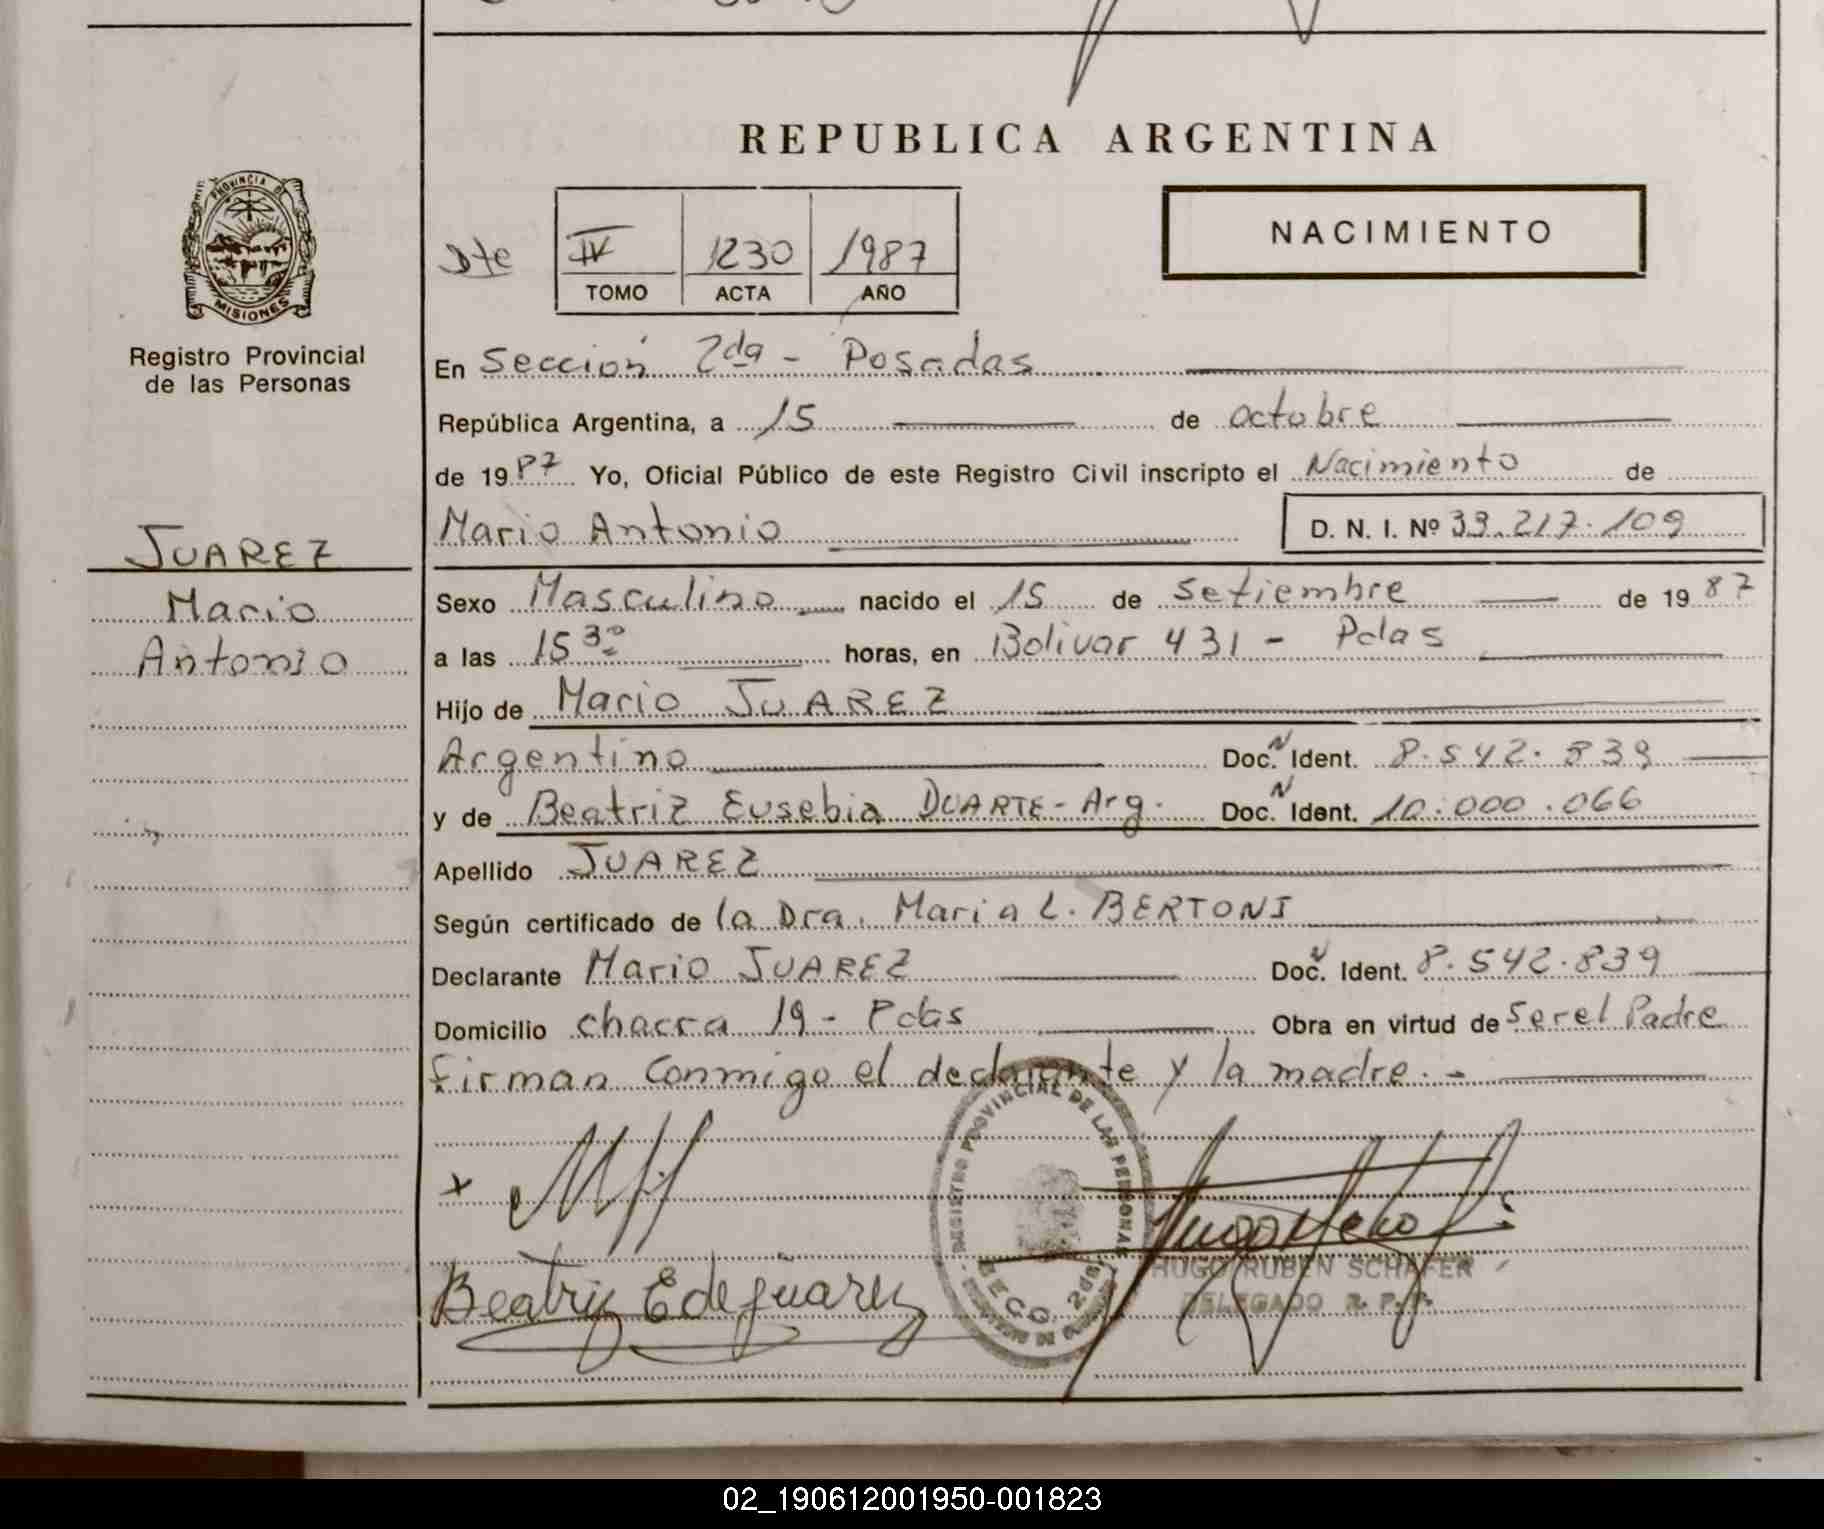 REPUBLICA ARGENTINA
PROVINCIA DE
MISIONES
Registro Provincial
de las Personas
Dte
IV 1230 1987
TOMO ACTA AÑO
NACIMIENTO
En Sección 2da - Posadas
República Argentina, a 15 de octubre
de 1987 Yo, Oficial Público de este Registro Civil inscripto el Nacimiento de
Mario Antonio D. N. I. Nº 33.217.109
JUAREZ
Mario
Antonio
Sexo Masculino nacido el 15 de Setiembre de 1987
a las 15 30 horas, en Bolivar 431 - Pdas
Hijo de Mario JUAREZ
Argentino Doc. N Ident. 8.542.839
y de Beatriz Eusebia DUARTE - Arg. Doc. N Ident. 10.000.066
Apellido JUAREZ
Según certificado de la Dra. Maria L. BERTONI
Declarante Mario JUAREZ Doc. N Ident. 8.542.839
Domicilio chacra 19 - Pdas Obra en virtud de Ser el Padre
firman conmigo el declarante y la madre. -
x
REGISTRO PROVINCIAL DE LAS PERSONAS
SECC. 2da.
HUGO RUBEN SCHAFER
DELEGADO R. P. P.
Beatriz E de juarez
02_190612001950-001823